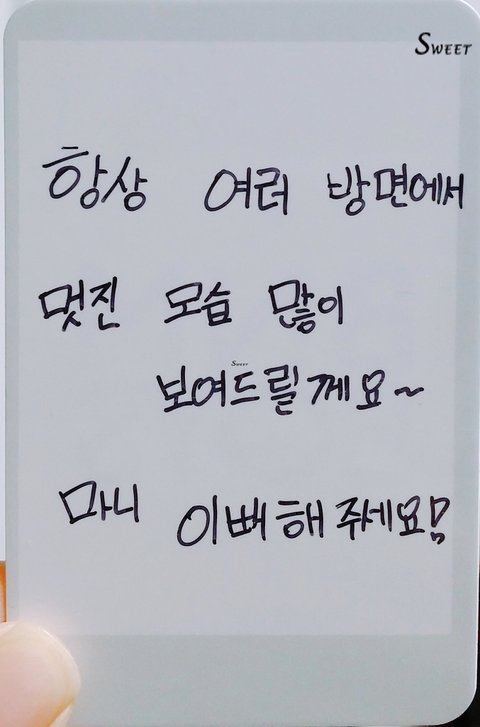 Sweet
항상 여러 방면에서
멋진 모습 많이
Sweet
보여드릴께요~
마니 이뻐해 주세요!